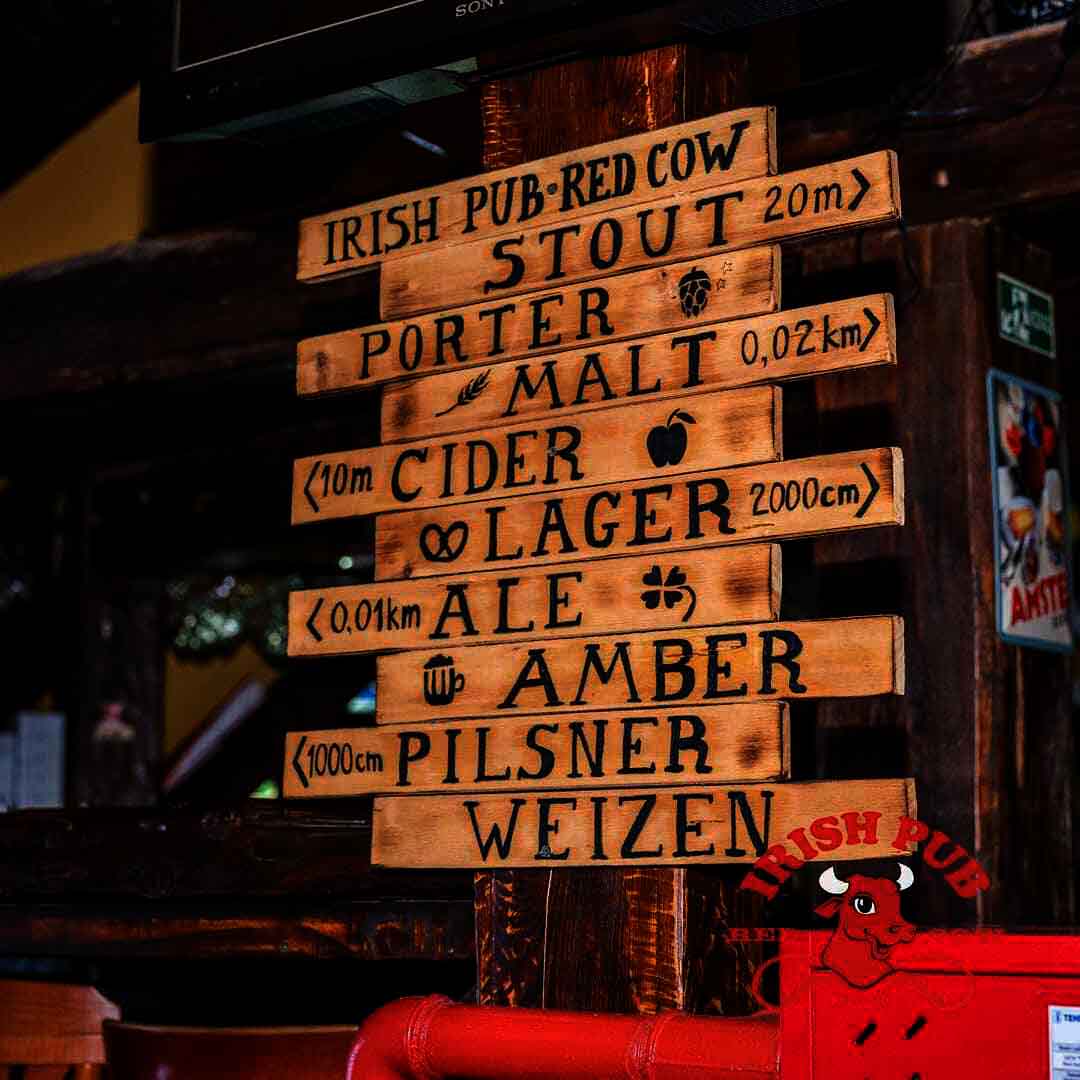 SONY
IRISH PUB·RED COW
STOUT 20m>
PORTER
MALT 0,02km>
<10m CIDER
LAGER 2000cm>
<0,01km ALE
AMBER
<1000cm PILSNER
WEIZEN
AMSTE
IRISH PUB